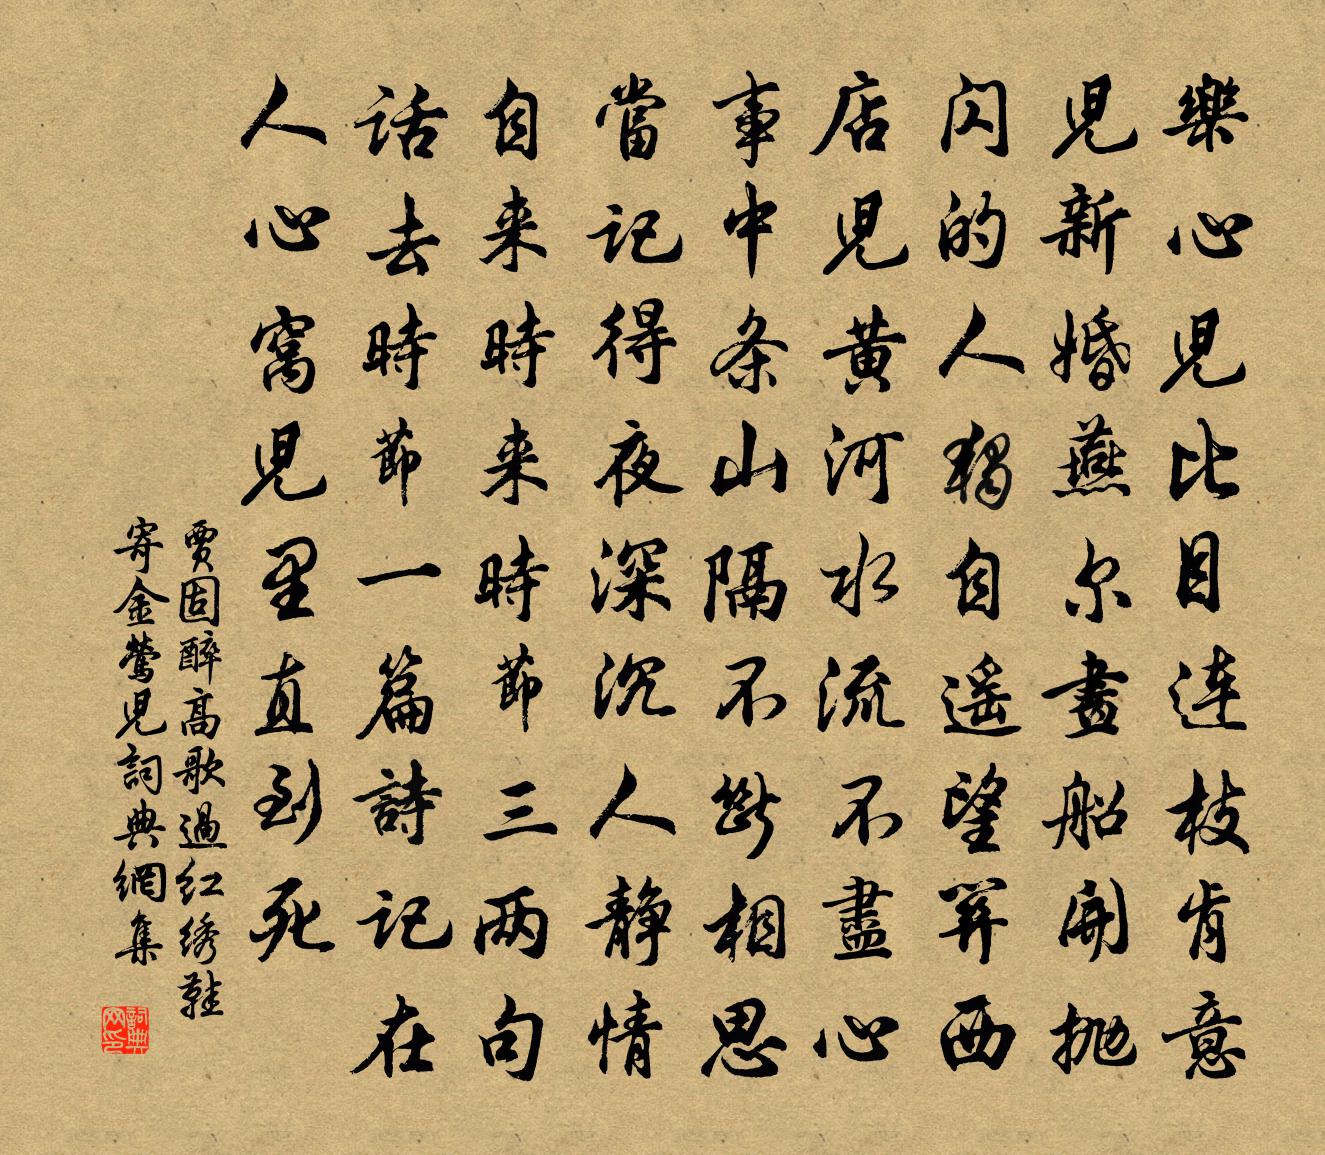 樂心兒比目連枝肯意
兒新婚燕尔畫船開抛
闪的人獨自遥望関西
店兒黄河水流不盡心
事中条山隔不斷相思
當記得夜深沉人静情
自来時来時節三两句
話去時節一篇詩記在
人心窩兒里直到死
賈固醉高歌過红绣鞋
寄金鶯兒詞典網集
詞典
网印